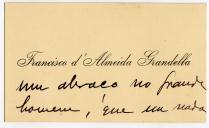 Francisco d'Almeida Grandella
um abraço no grande
homem, que um nada